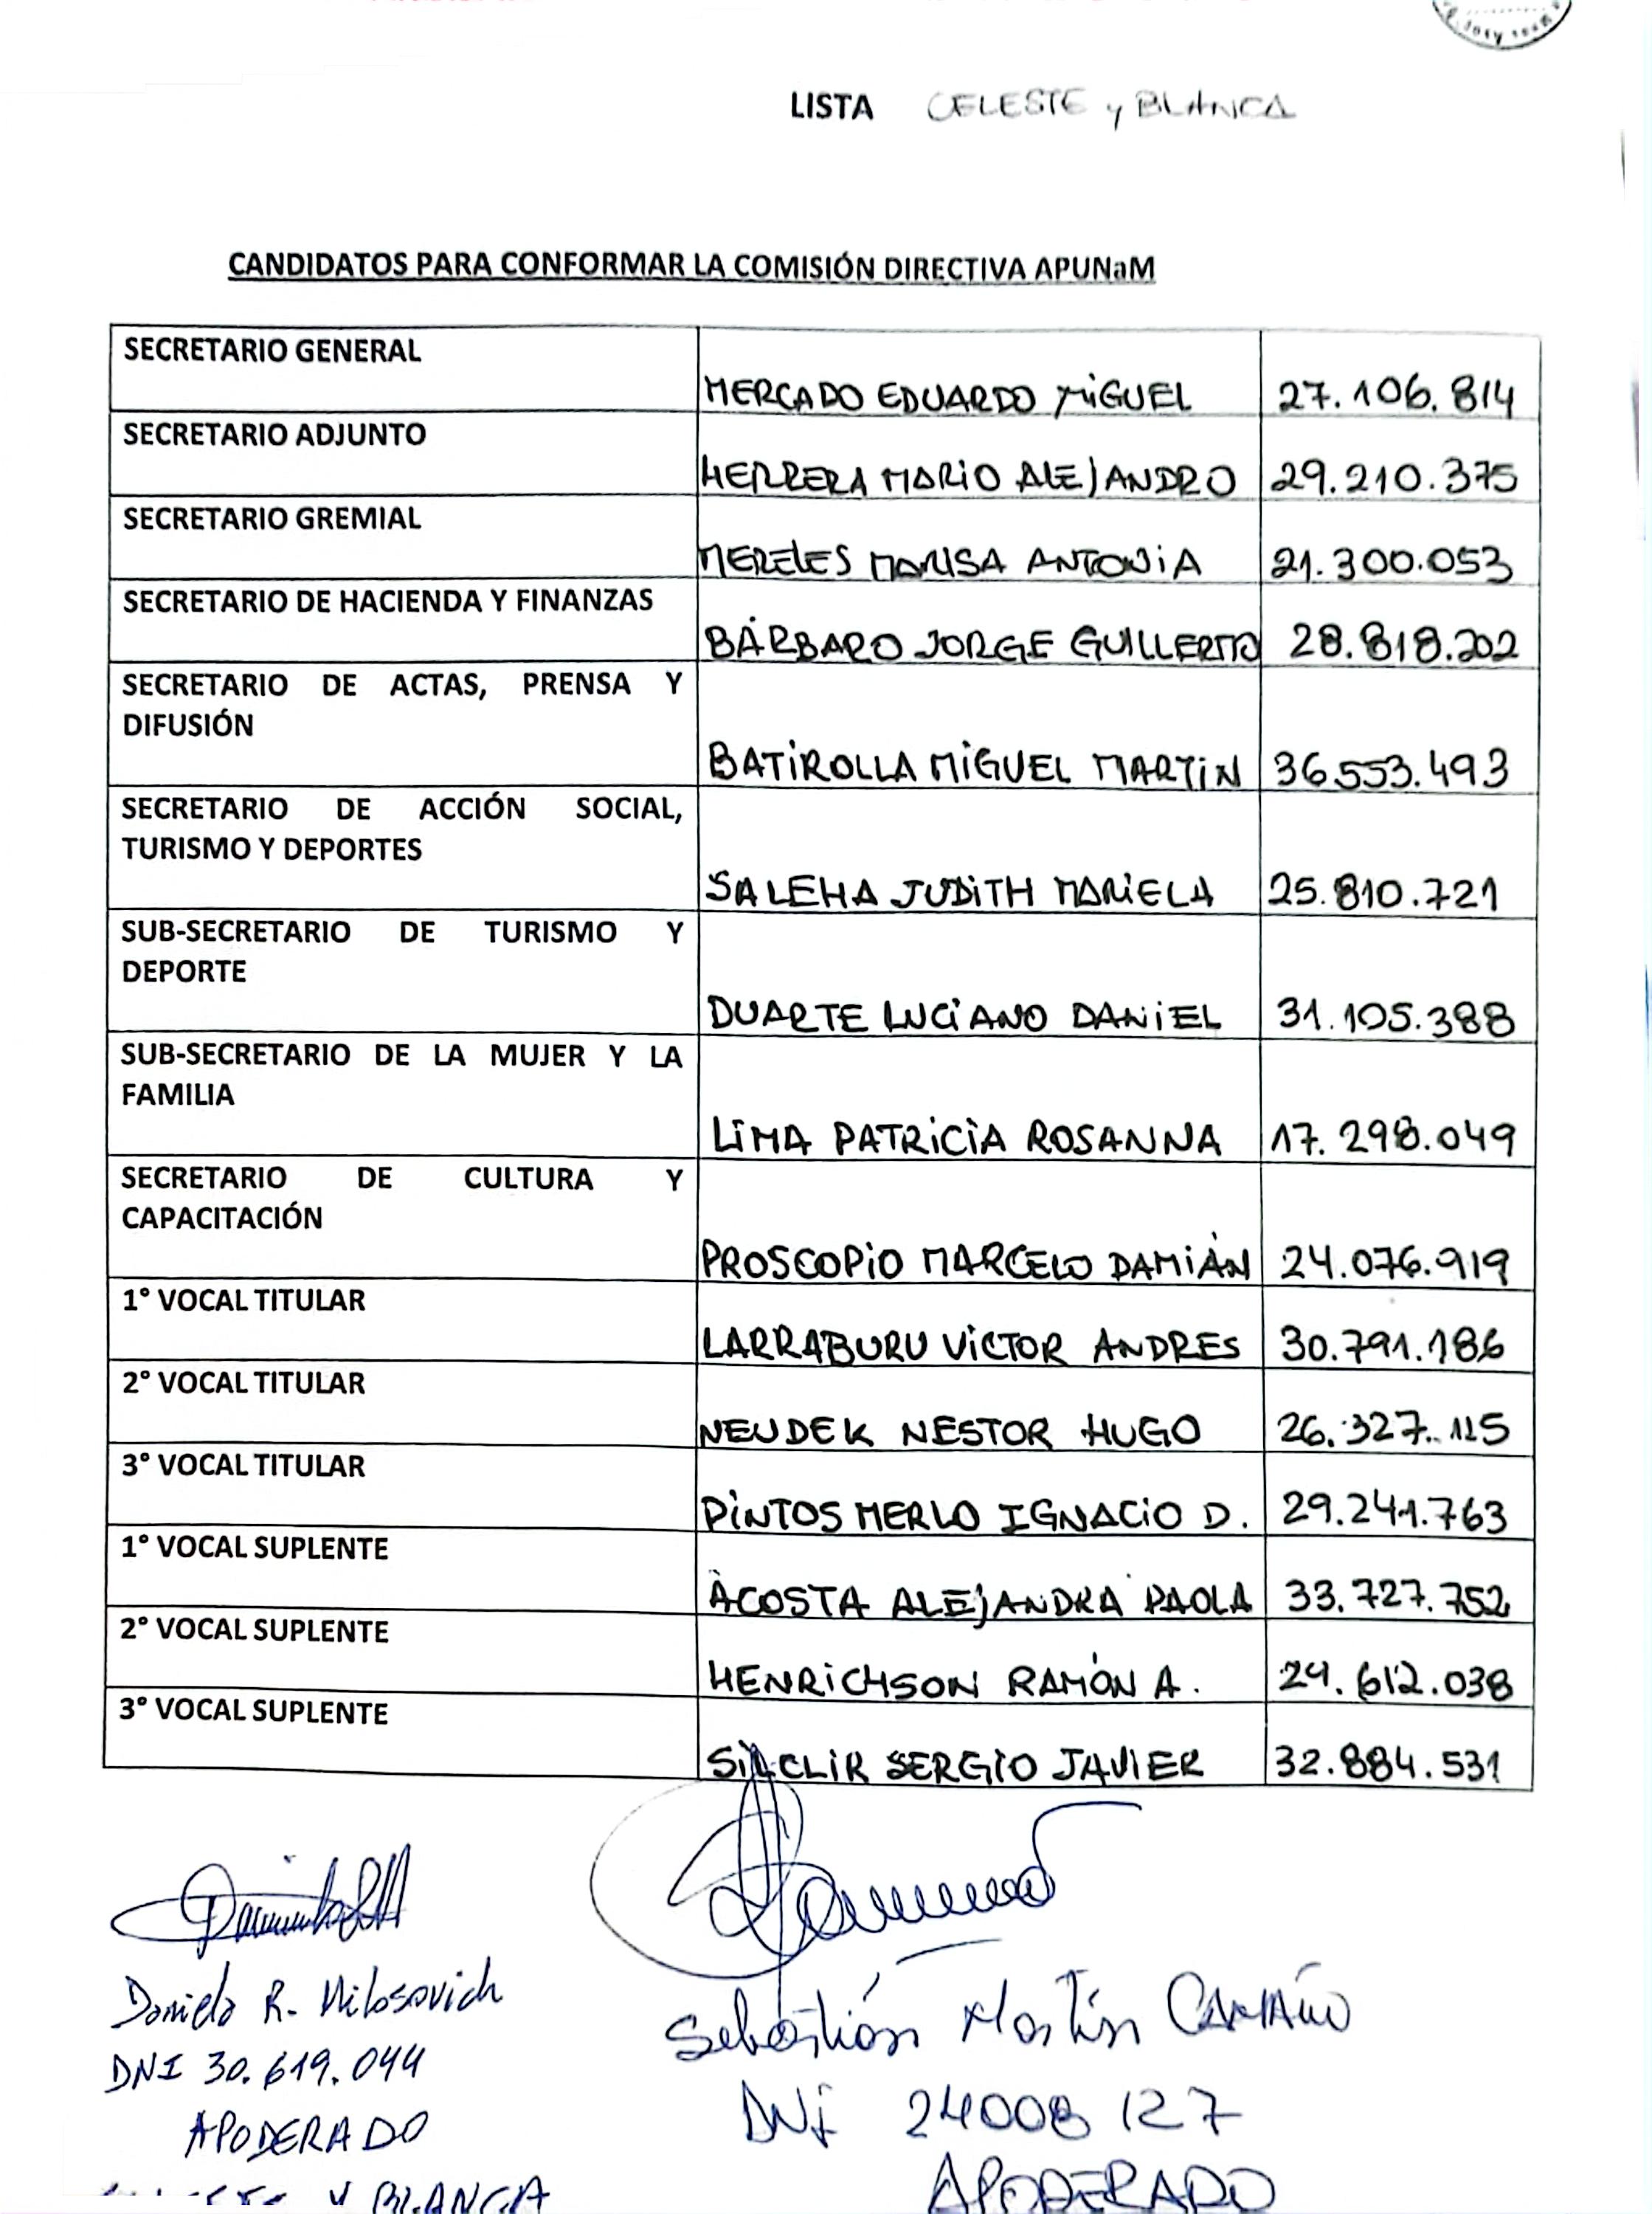 LISTA CELESTE y BLANCA
CANDIDATOS PARA CONFORMAR LA COMISIÓN DIRECTIVA APUNaM
SECRETARIO GENERAL
MERCADO EDUARDO MIGUEL 27.106.814
SECRETARIO ADJUNTO
HERRERA MARIO ALEJANDRO 29.210.375
SECRETARIO GREMIAL
MERELES MARISA ANTONIA 21.300.053
SECRETARIO DE HACIENDA Y FINANZAS
BÁRBARO JORGE GUILLERMO 28.818.202
SECRETARIO DE ACTAS, PRENSA Y
DIFUSIÓN
BATIROLLA MIGUEL MARTIN 36.553.493
SECRETARIO DE ACCIÓN SOCIAL,
TURISMO Y DEPORTES
SALEHA JUDITH MARIELA 25.810.721
SUB-SECRETARIO DE TURISMO Y
DEPORTE
DUARTE LUCIANO DANIEL 31.105.388
SUB-SECRETARIO DE LA MUJER Y LA
FAMILIA
LIMA PATRICIA ROSANNA 17.298.049
SECRETARIO DE CULTURA Y
CAPACITACIÓN
PROSCOPIO MARCELO DAMIÁN 24.076.919
1° VOCAL TITULAR
LARRABURU VICTOR ANDRES 30.791.186
2° VOCAL TITULAR
NEUDEK NESTOR HUGO 26.327.115
3° VOCAL TITULAR
PINTOS MERLO IGNACIO D. 29.241.763
1° VOCAL SUPLENTE
ACOSTA ALEJANDRA PAOLA 33.727.752
2° VOCAL SUPLENTE
HENRICHSON RAMÓN A. 24.612.038
3° VOCAL SUPLENTE
SINCLIR SERGIO JAVIER 32.884.531
Daniela R. Milosovich
DNI 30.619.044
APODERADO
Y BLANCA
Sebastián Martín CAMAÑO
DNI 24008127
APODERADO